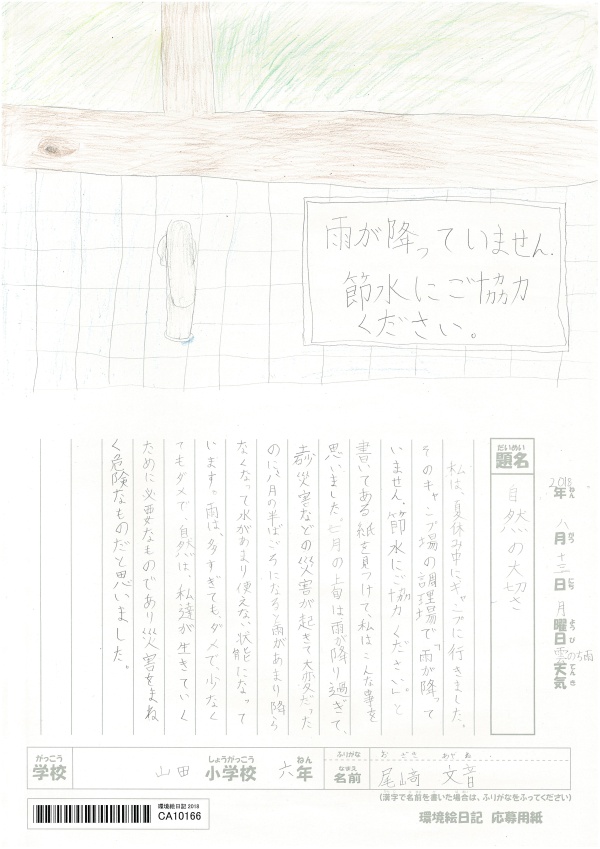 雨が降っていません.
節水にご協力
ください。
2018年ねん 八月がつ 十三日にち 月曜日ようび 雲のち雨天気てんき
だいめい
題名
自然の大切さ
私は、夏休み中にキャンプに行きました。
そのキャンプ場の調理場で「雨が降って
いません.節水にご協力ください。」と
書いてある紙を見つけて、私はこんな事を
思いました。七月の上旬は雨が降り過ぎて、
土砂災害などの災害が起きて大変だった
のに八月の半ばごろになると雨があまり降ら
なくなって水があまり使えない状態になって
います。雨は多すぎてもダメで、少なく
てもダメで、自然は、私達が生きていく
ために必要なものであり災害をまね
く危険なものだと思いました。
がっこう しょうがっこう ねん ふりがな おざき あやね
学校 山田 小学校 六年 なまえ 名前 尾崎 文音
(漢字で名前を書いた場合は、ふりがなをふってください)
環境絵日記 2018
CA10166
環境絵日記 応募用紙